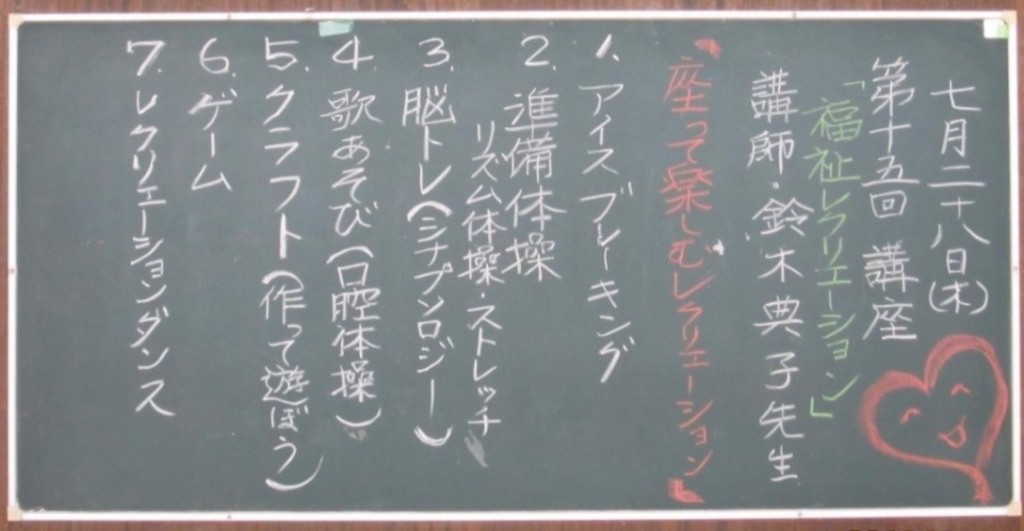 七月二十八日(木)
第十五回 講座
「福祉レクリエーション」
講師・鈴木典子先生
『座って楽しむレクリエーション』
1. アイスブレーキング
2. 準備体操
リズム体操・ストレッチ
3. 脳トレ(シナプソロジー)
4. 歌あそび(口腔体操)
5. クラフト(作って遊ぼう)
6. ゲーム
7. レクリエーションダンス